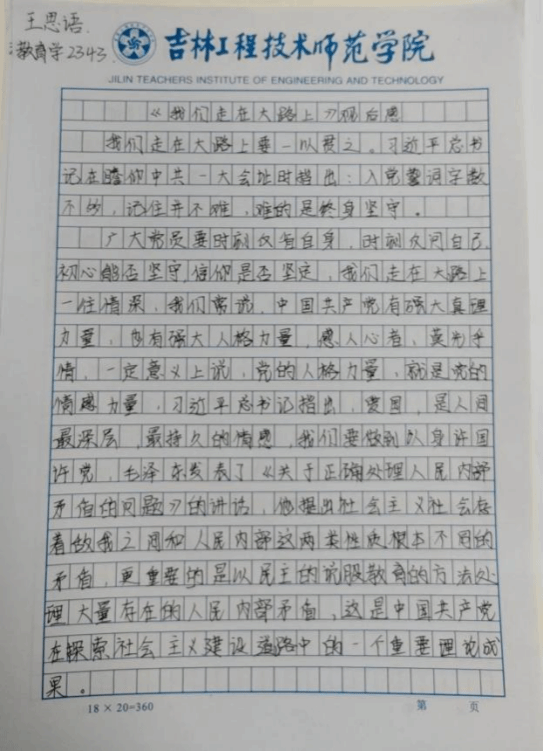 王思语
教育学2343
吉林工程技术师范学院
JILIN TEACHERS INSTITUTE OF ENGINEERING AND TECHNOLOGY
《我们走在大路上》观后感
我们走在大路上要一以贯之。习近平总书
记在瞻仰中共一大会址时指出：入党誓词字数
不多，记住并不难，难的是终身坚守。
广大党员要时刻 自身，时刻 问自己，
初心能否坚守，信仰是否坚定，我们走在大路上
一往情深，我们常说，中国共产党有强大真理
力量，也有强大人格力量，感人心者，莫先乎
情，一定意义上说，党的人格力量，就是党的
情感力量，习近平总书记指出，爱国，是人间
最深层、最持久的情感，我们要做到以身许国
许党，毛泽东发表了《关于正确处理人民内部
矛盾的问题》的讲话，他提出社会主义社会存
着敌我之间和人民内部这两类性质根本不同的
矛盾，更重要的是以民主的说服教育的方法处
理大量存在的人民内部矛盾，这是中国共产党
在探索社会主义建设道路中的一个重要理论成
果。
18×20=360 第 页